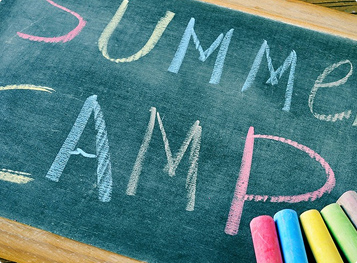 SUMMe
CAMP